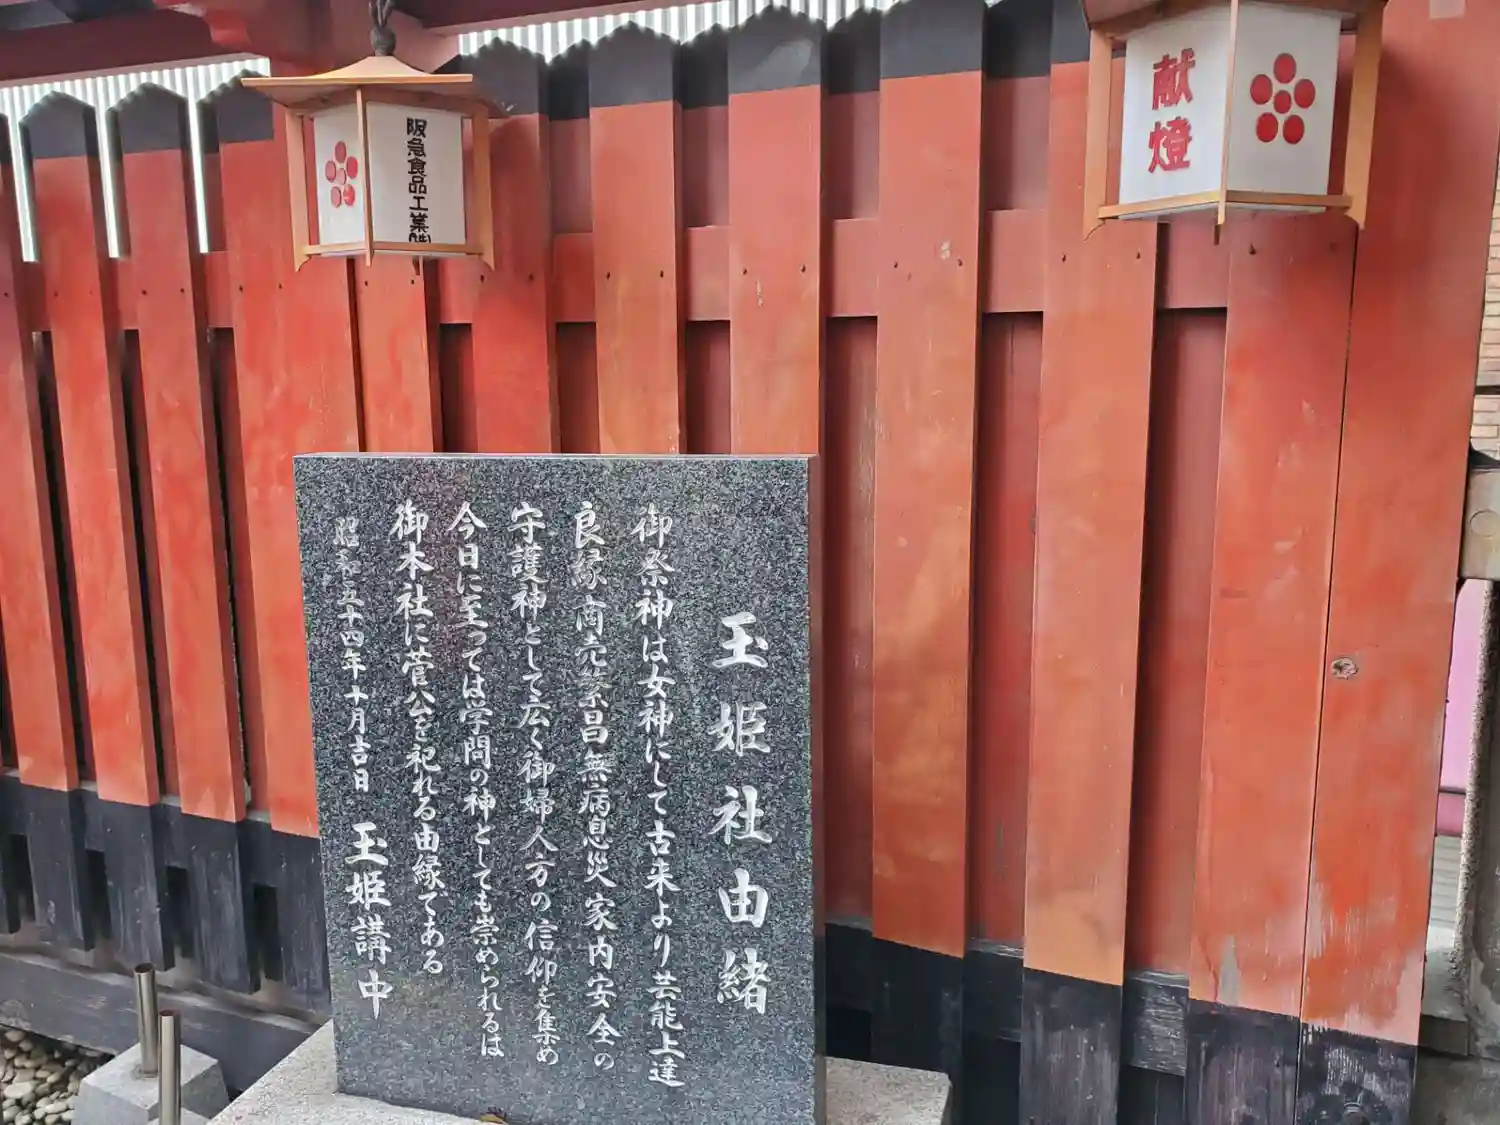 献燈
阪急食品工業㈱
玉姫社由緒
御祭神は女神にして古来より芸能上達
良縁商売繁昌無病息災家内安全の
守護神として広く御婦人方の信仰を集め
今日に至っては学問の神としても崇められるは
御本社に菅公を祀れる由縁である
昭和五十四年十月吉日 玉姫講中